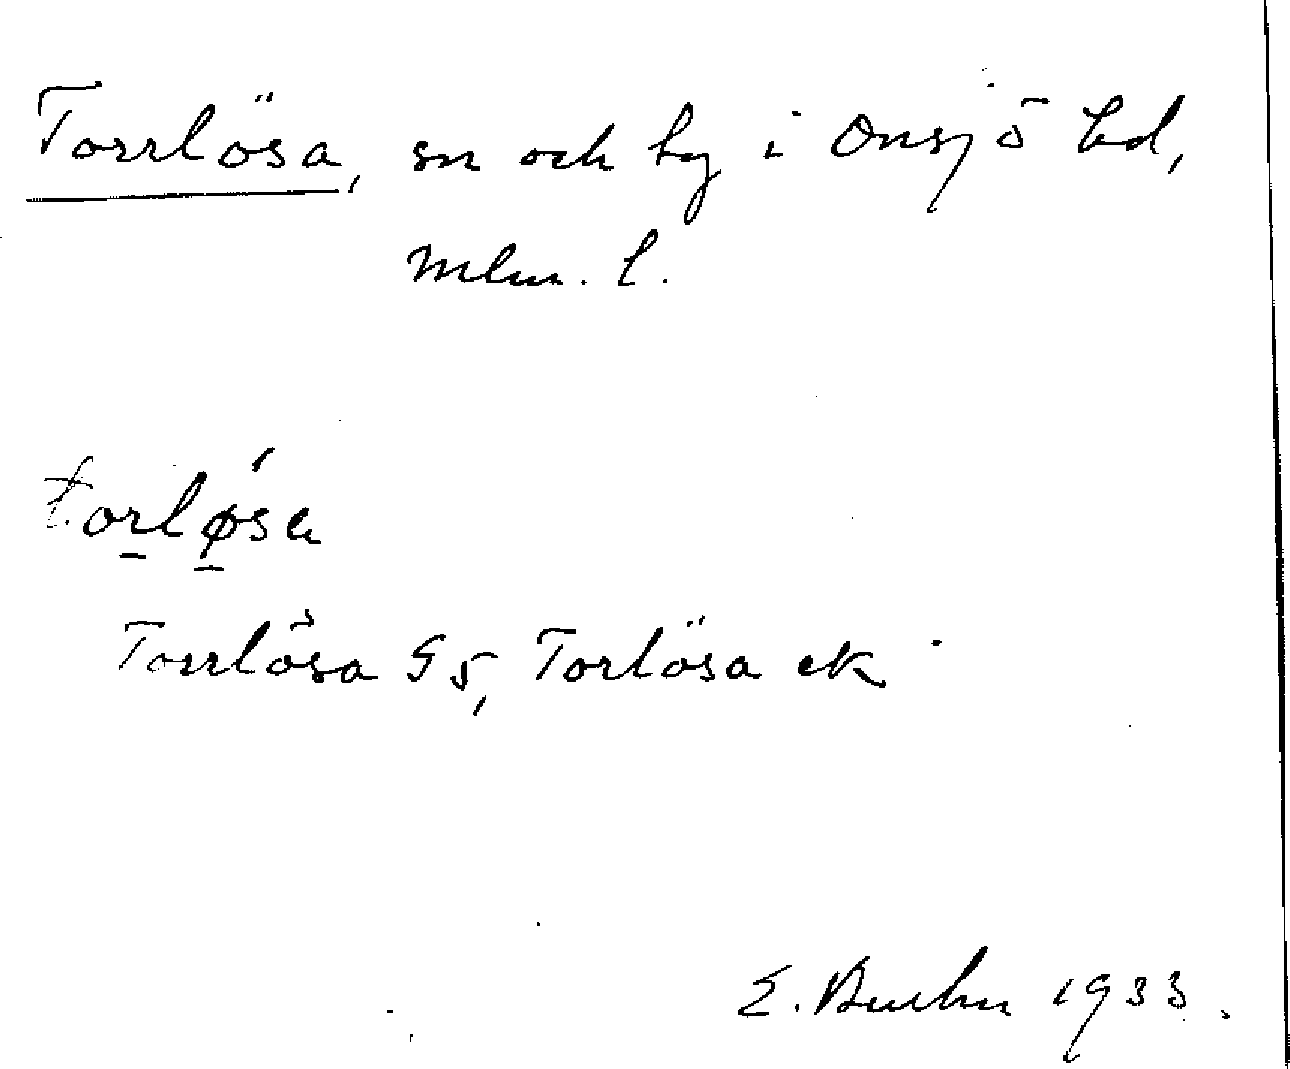 Torrlösa, sn och by i Onsjö hd,
Mlm. l.
torløsa
Torrlösa GS, Torlösa ek
E. 1933.